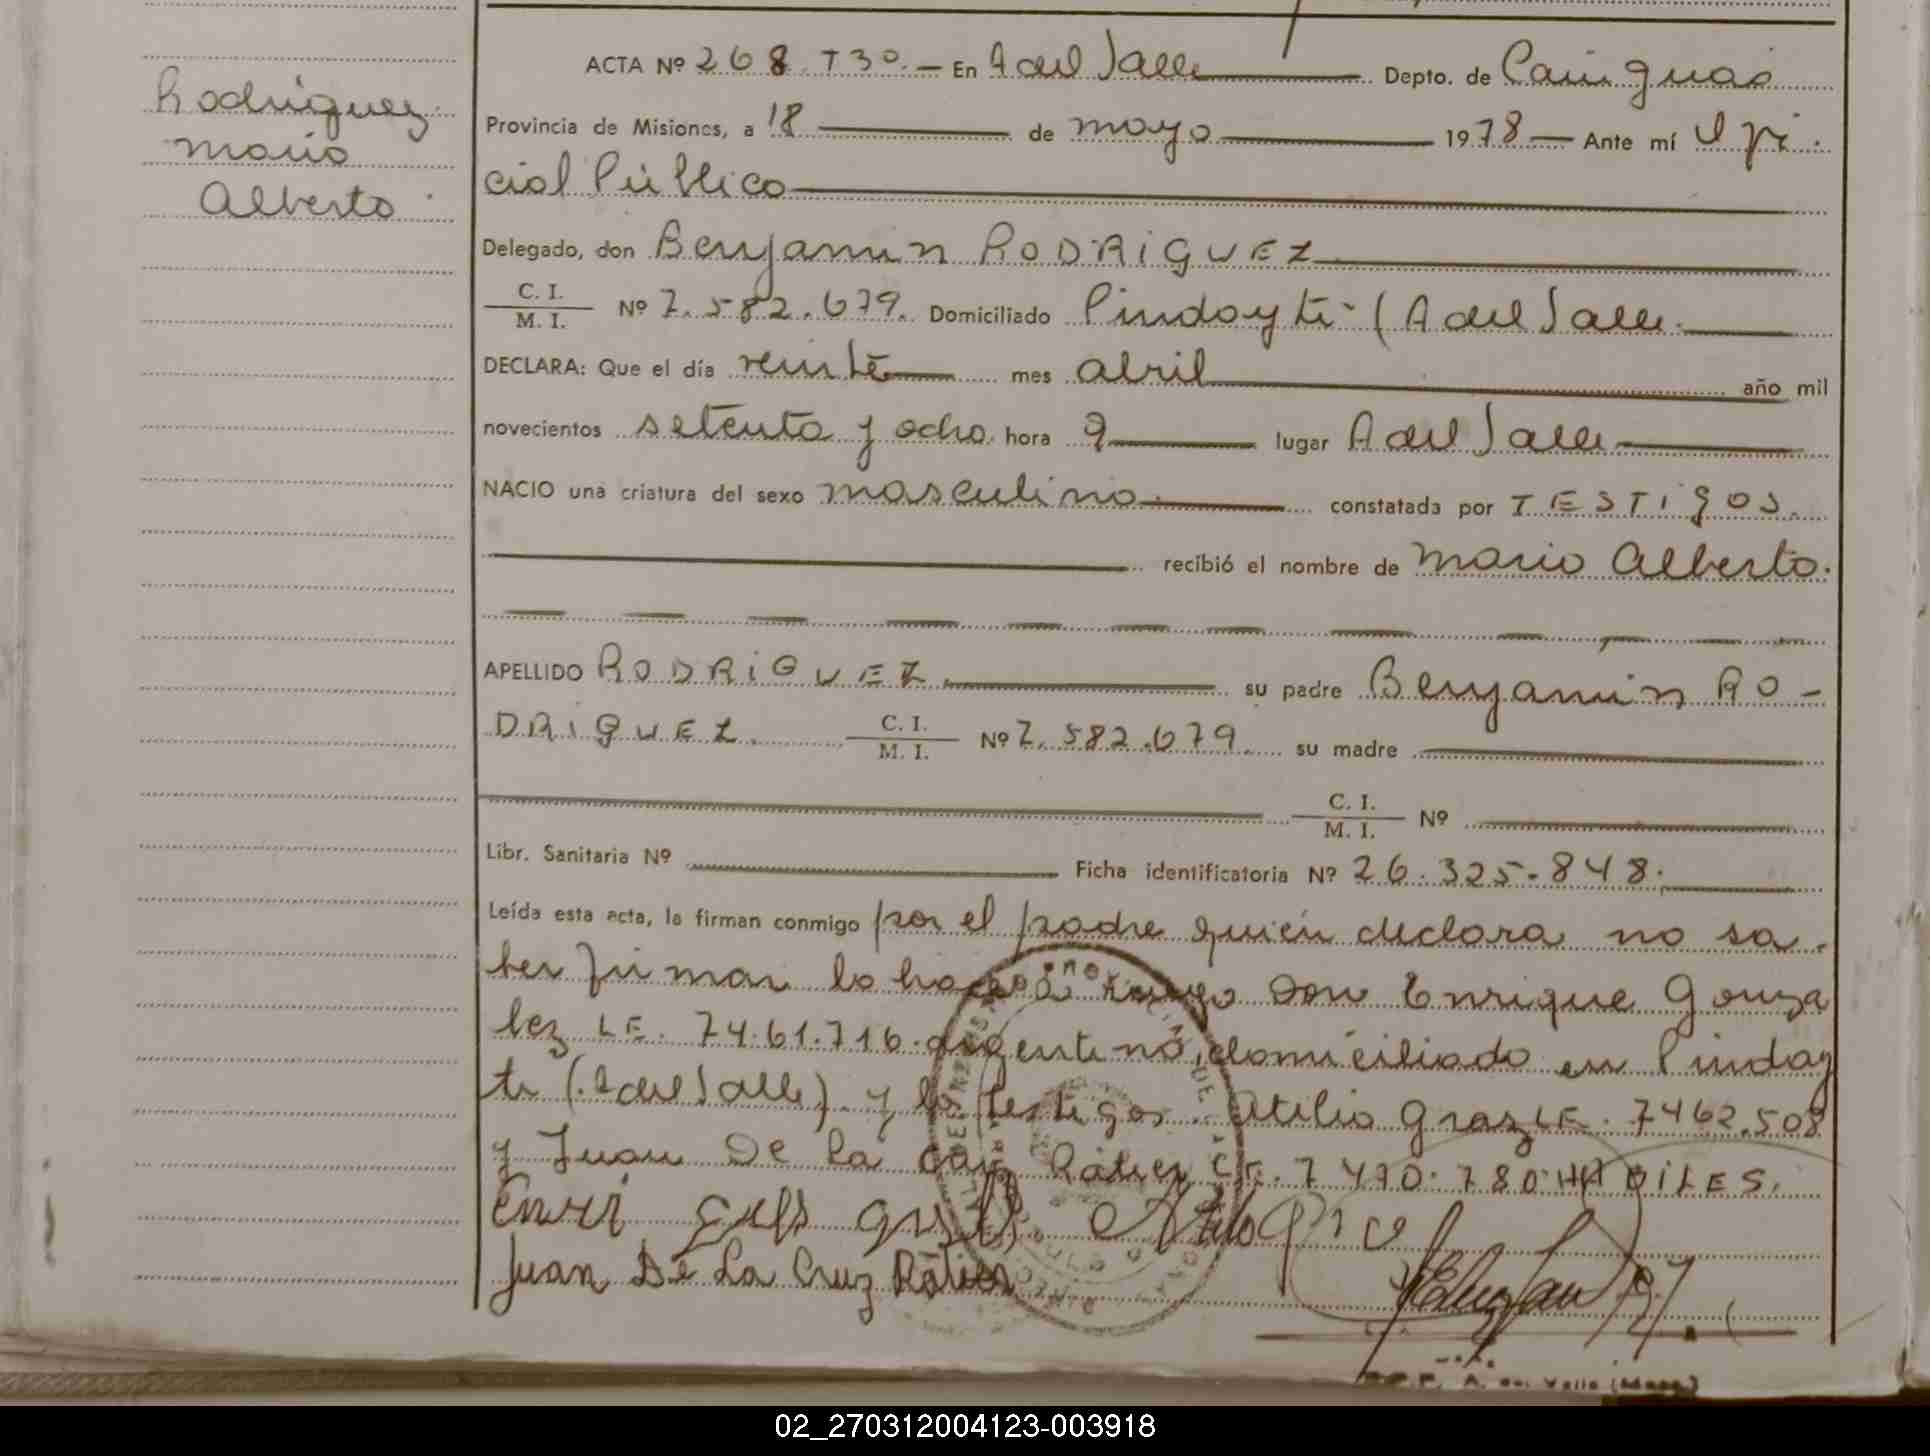 Rodriguez
Mario
Alberto
ACTA Nº 268 T30.— En A del Valle Depto. de Cainguas
Provincia de Misiones, a 18 de mayo 1978 — Ante mí Ofi
cial Público
Delegado, don Benjamin RODRIGUEZ
C. I.
M. I. Nº 7.582.679. Domiciliado Pindoyti - (A del Valle.
DECLARA: Que el día veinte mes abril año mil
novecientos setenta y ocho hora 9 lugar A del Valle
NACIO una criatura del sexo masculino constatada por TESTIGOS.
recibió el nombre de Mario Alberto.
APELLIDO RODRIGUEZ. su padre Benjamin RO-
DRIGUEZ. C. I.
M. I. Nº 7.582.679. su madre
C. I.
M. I. Nº
Libr. Sanitaria Nº Ficha identificatoria Nº 26.325.848.
Leída esta acta, la firman conmigo por el padre quién declara no sa-
ber firmar lo hace a ruego Don Enrique Gonza
lez LE. 74.61.716. argentino, domiciliado en Pindoy
ti (A del Valle). y los testigos. Atilio LE. 7462.508
y Juan De la Cruz Rátier LE. 7470.780. HABILES.
Juan De La Cruz Rátier
A. del Valle
02_270312004123-003918